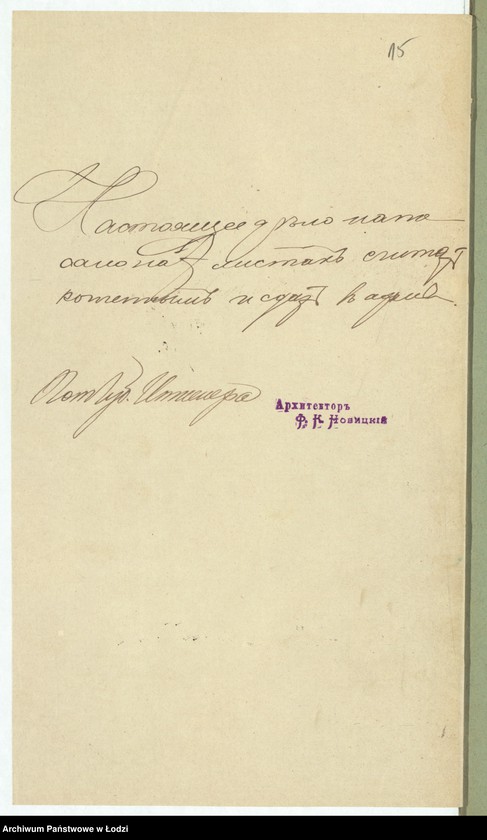 15
Настоящее дѣло напи
сано на 7 листахъ считать
конченнымъ и сдать в архив.
Пом Губ. Инженера
Архитекторъ
Ф. К. Новицкій
Archiwum Państwowe w Łodzi